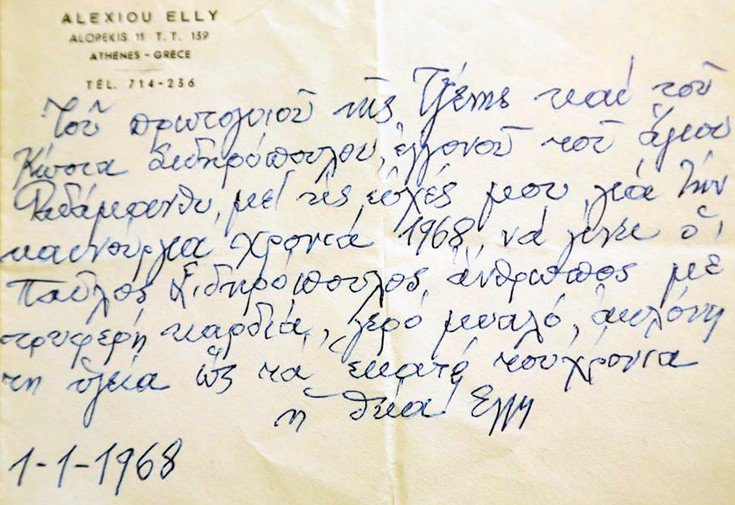 ALEXIOU ELLY
ALOPEKIS 11 T.T. 139
ATHENES - GRÈCE
TÉL. 714-236
Τοῦ πρωτογυιοῦ τῆς Τζένης καί τοῦ
Κώστα Σιδηρόπουλου, ἐγγονοῦ τοῦ
μέ τίς εὐχές μου γιά τήν
καινούργια χρονιά 1968, νά γίνει ὁ
Παῦλος Σιδηρόπουλος ἄνθρωπος μέ
τρυφερή καρδιά, γερό μυαλό, ἀκλόνη
τη ὑγεία ὥς τά ἑκατό του χρόνια
ἡ θεία Ἔλλη
1-1-1968